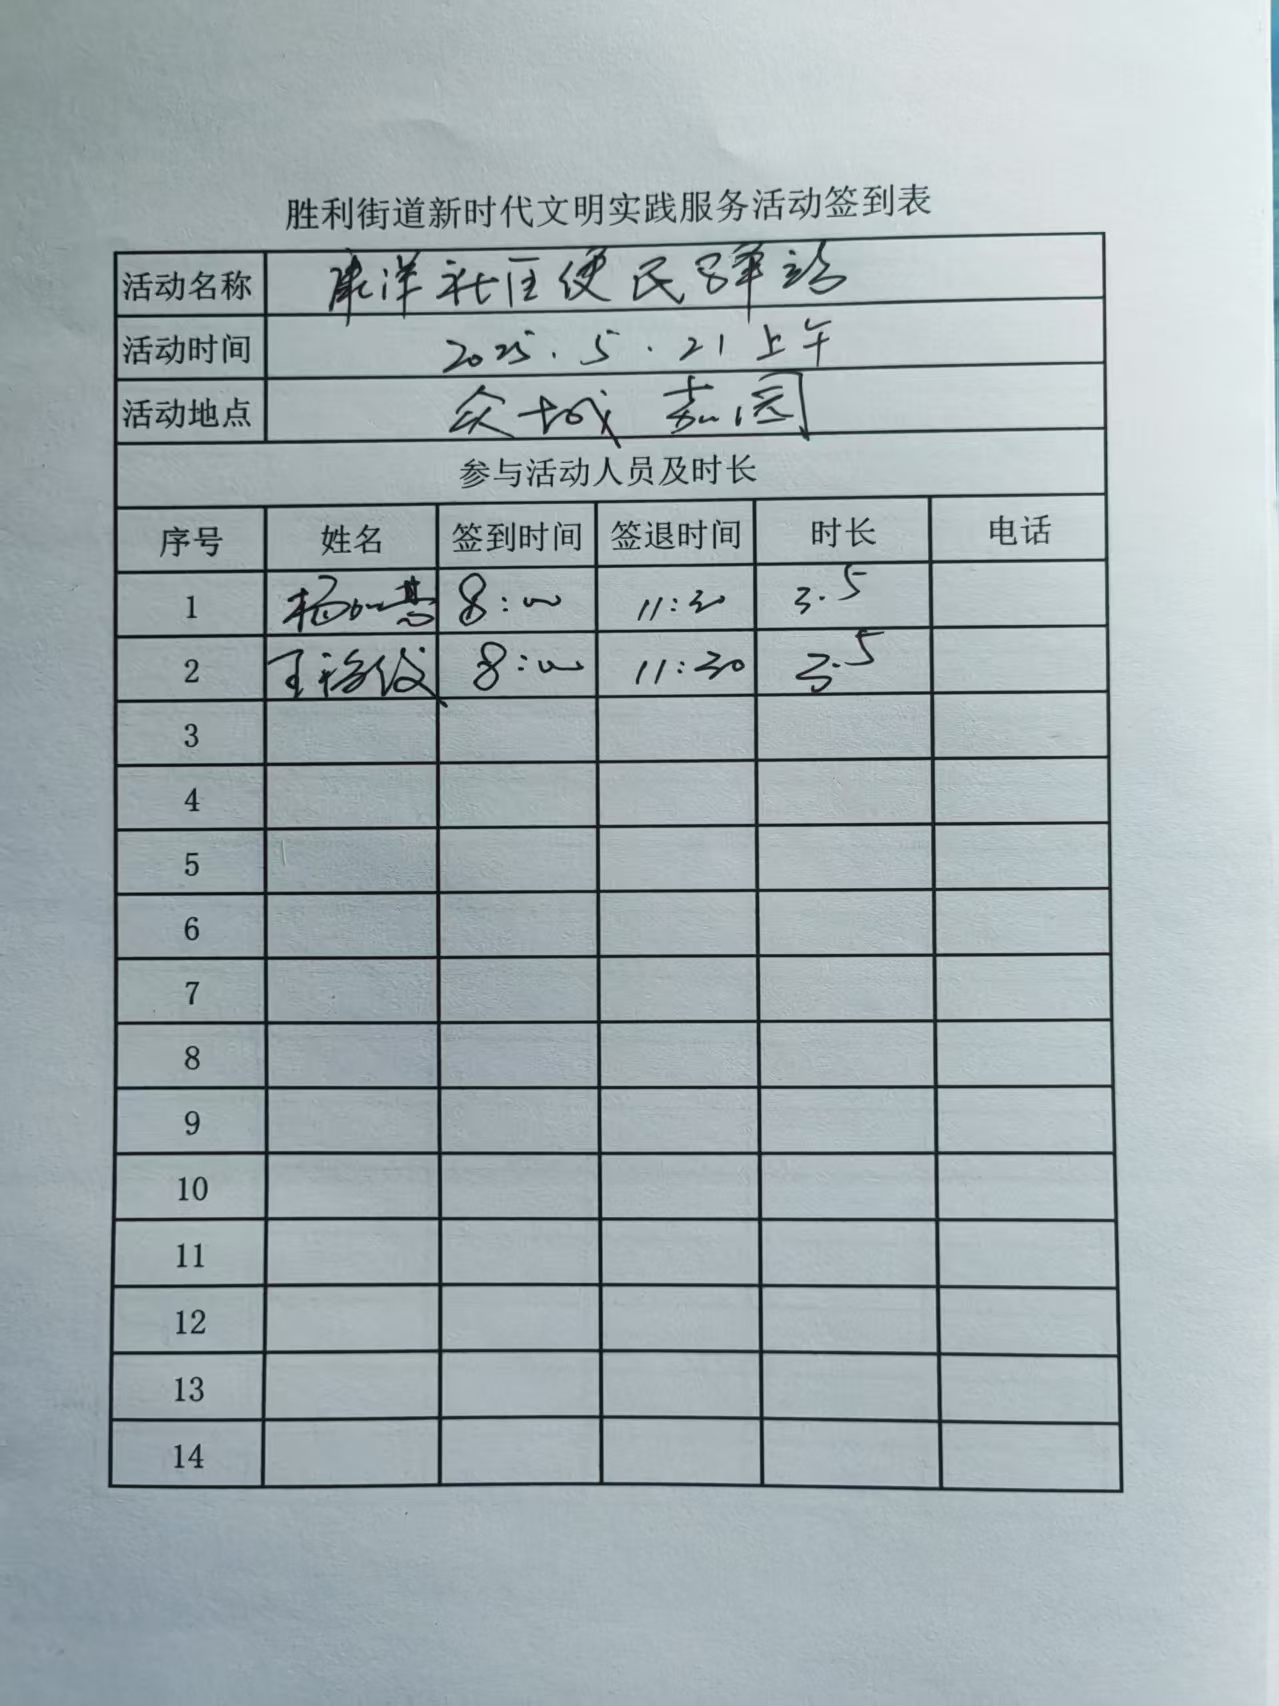 胜利街道新时代文明实践服务活动签到表
活动名称 康洋社区便民驿站
活动时间 2025.5.21上午
活动地点 众城嘉园
参与活动人员及时长
序号 姓名 签到时间 签退时间 时长 电话
1 杨 慧 8:00 11:30 3.5
2 王 俊 8:00 11:30 3.5
3
4
5
6
7
8
9
10
11
12
13
14